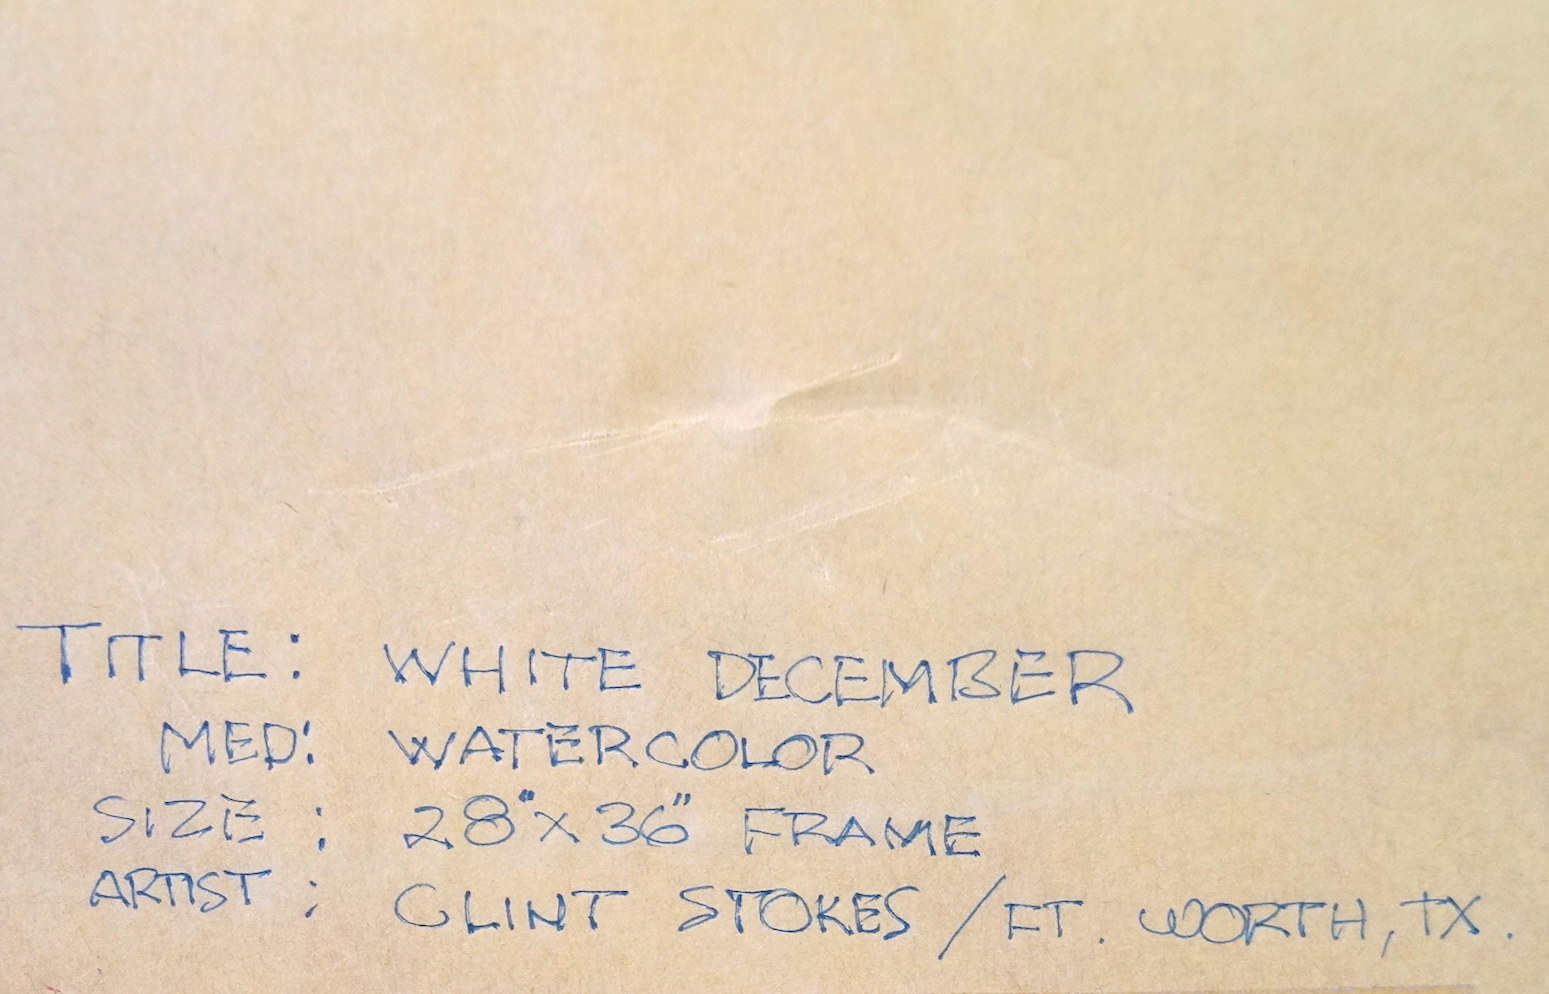 TITLE: WHITE DECEMBER
MED: WATERCOLOR
SIZE: 28"x36" FRAME
ARTIST: CLINT STOKES / FT. WORTH, TX.